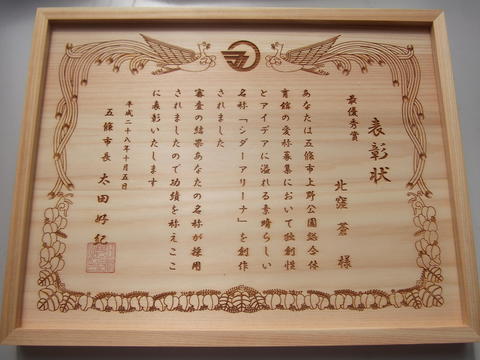 表彰状
最優秀賞
北窪蒼様
あなたは五條市上野公園総合体
育館の愛称募集において独創性
とアイデアに溢れる素晴らしい
名称「シダーアリーナ」を創作
されました
審査の結果あなたの名称が採用
されましたので功績を称えここ
に表彰いたします
平成二十八年十月五日
五條市長 太田好紀